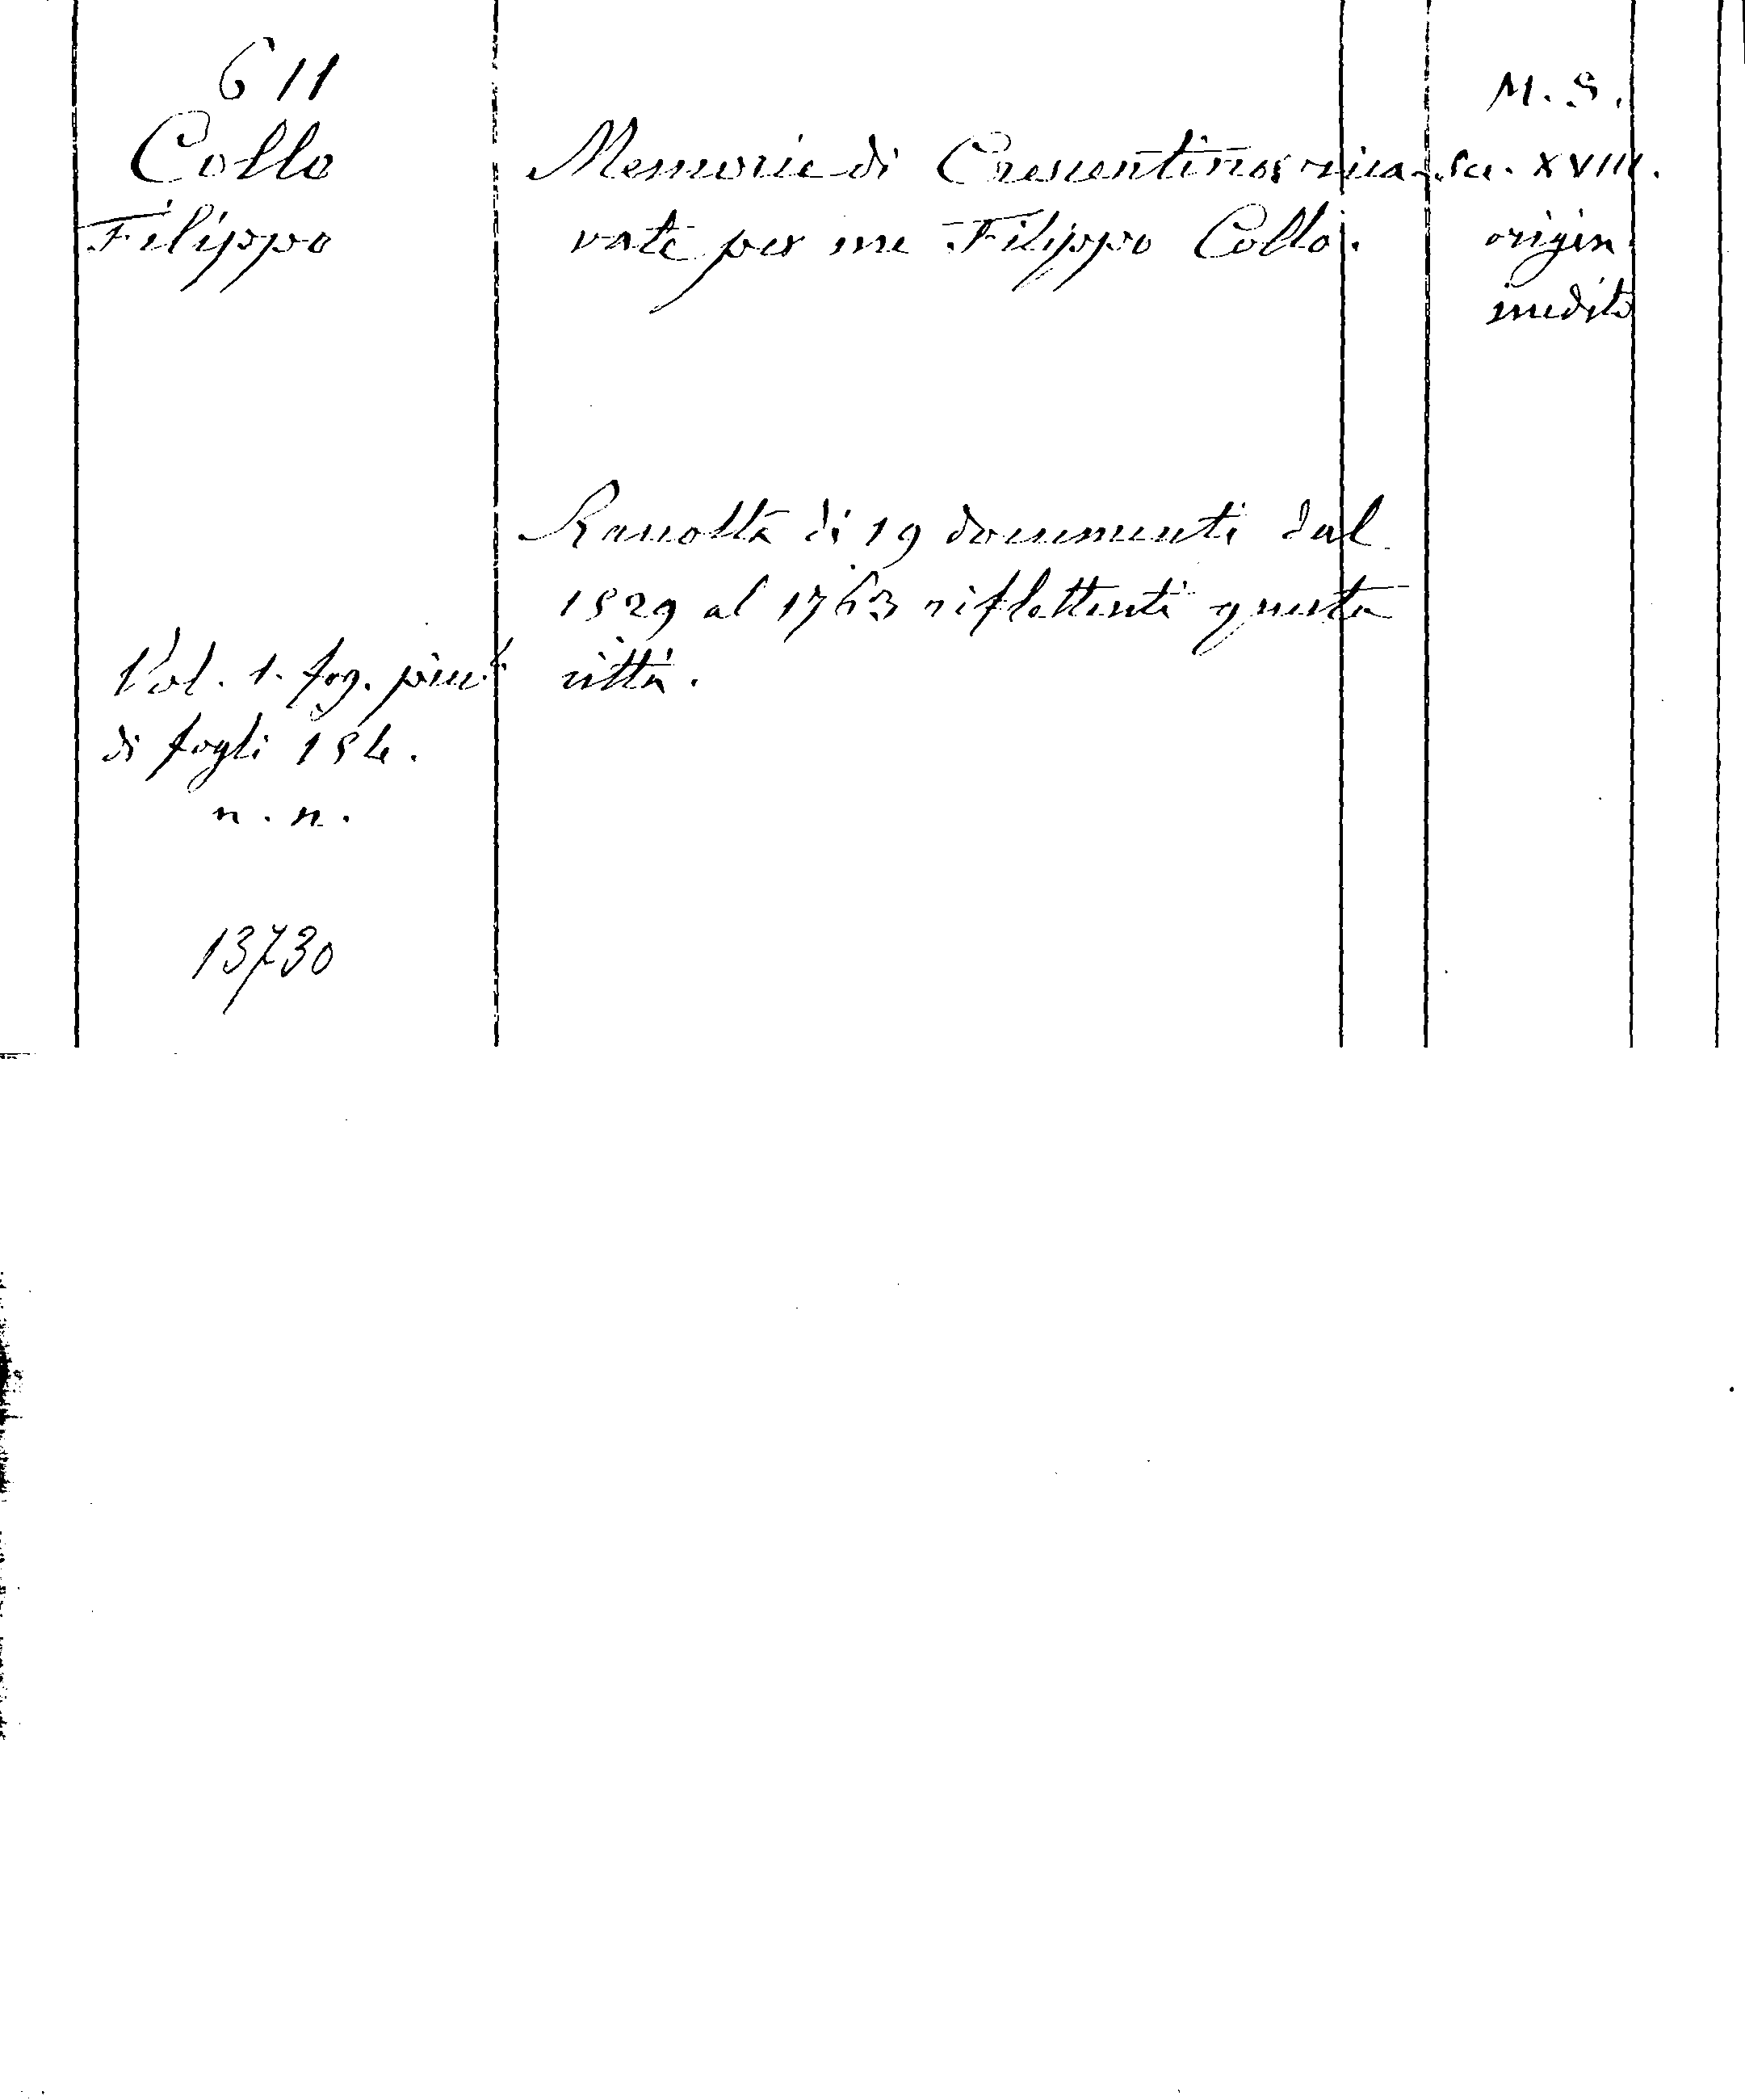 611
Collo
Filippo
Memorie di Crescentino rica-
vate per me Filippo Collo.
M. S.
sec. XVIII.
origin.
inedito
Raccolta di 19 documenti dal
1529 al 1763 riflettenti questa
città.
Vol. 1. fog. picc.
di fogli 154.
n. n.
13730